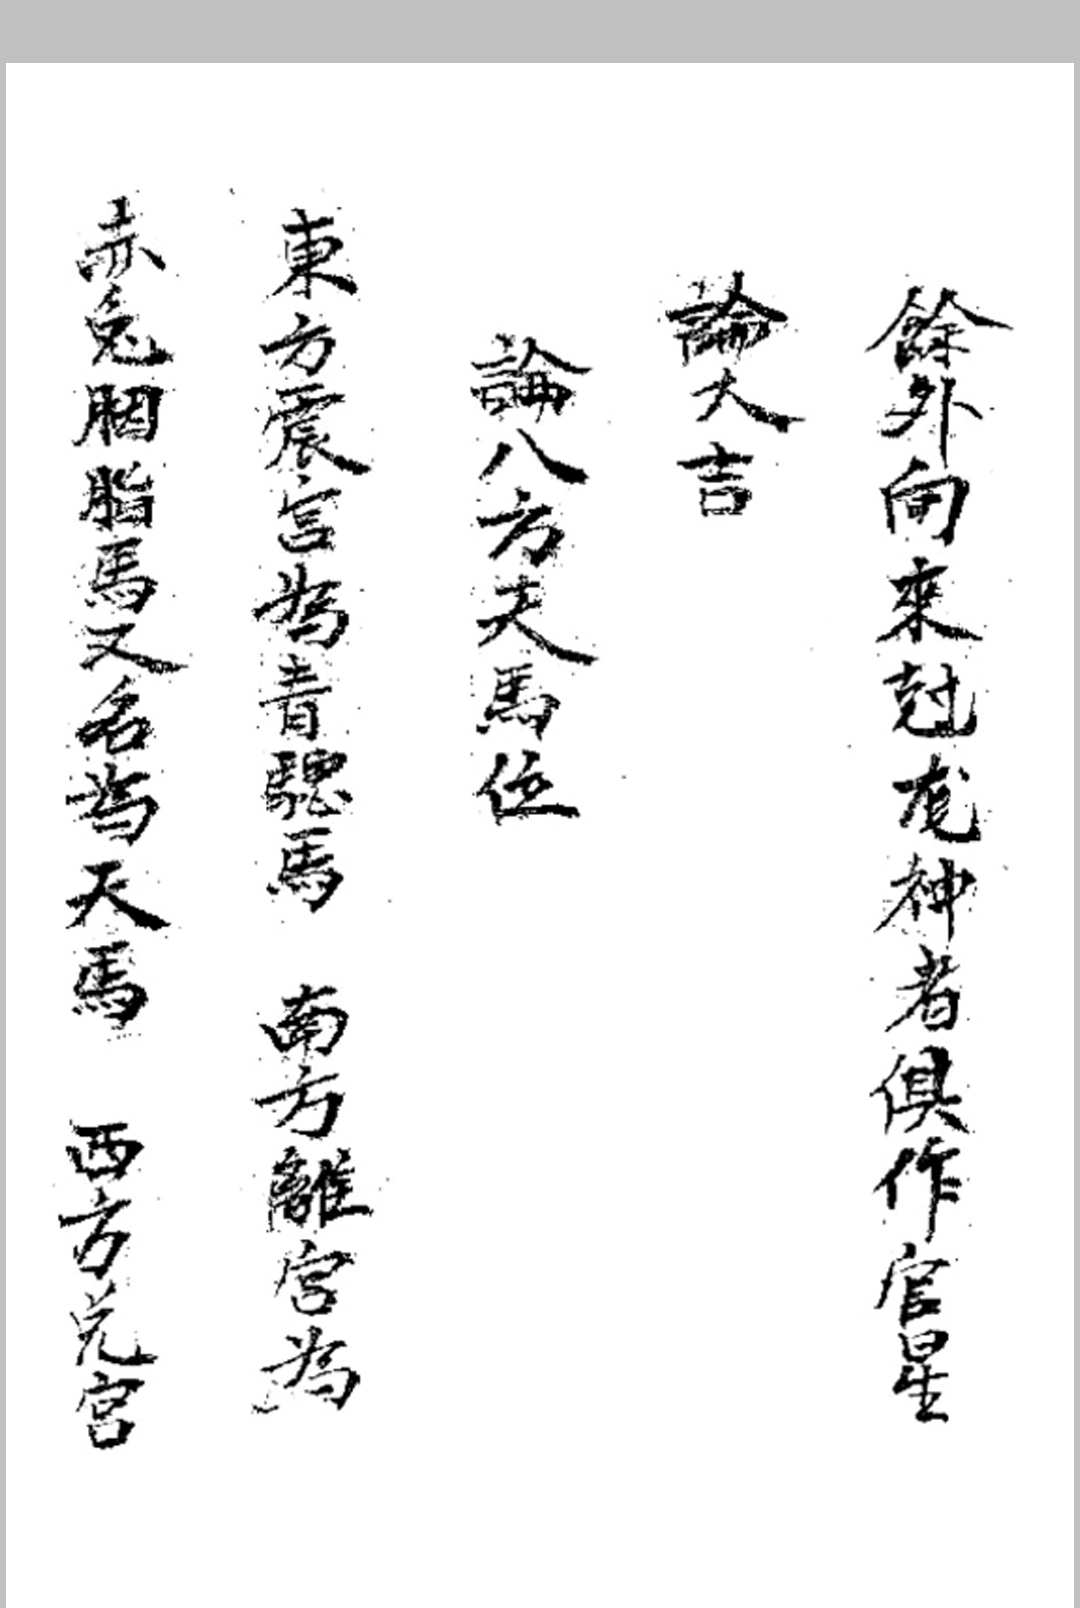 餘外向來尅龙神者俱作官星
論大吉
論八方天馬位
東方震宮為青驄馬　南方離宮為
赤兔胭脂馬又名為天馬　西方兌宮